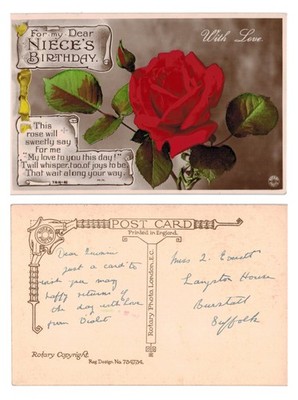 For my Dear
NIECE'S
BIRTHDAY.
With Love.
This
rose will
sweetly say
for me
"My love to you this day!"
'Twill whisper, too, of joys to be
That wait along your way.
POST CARD
Printed in England.
Rotary Photo London, E.C.
Dear
Just a card to
wish you many
happy returns of
the day with love
from Violet
Miss
House
Suffolk
Rotary Copyright.
Reg Design No.